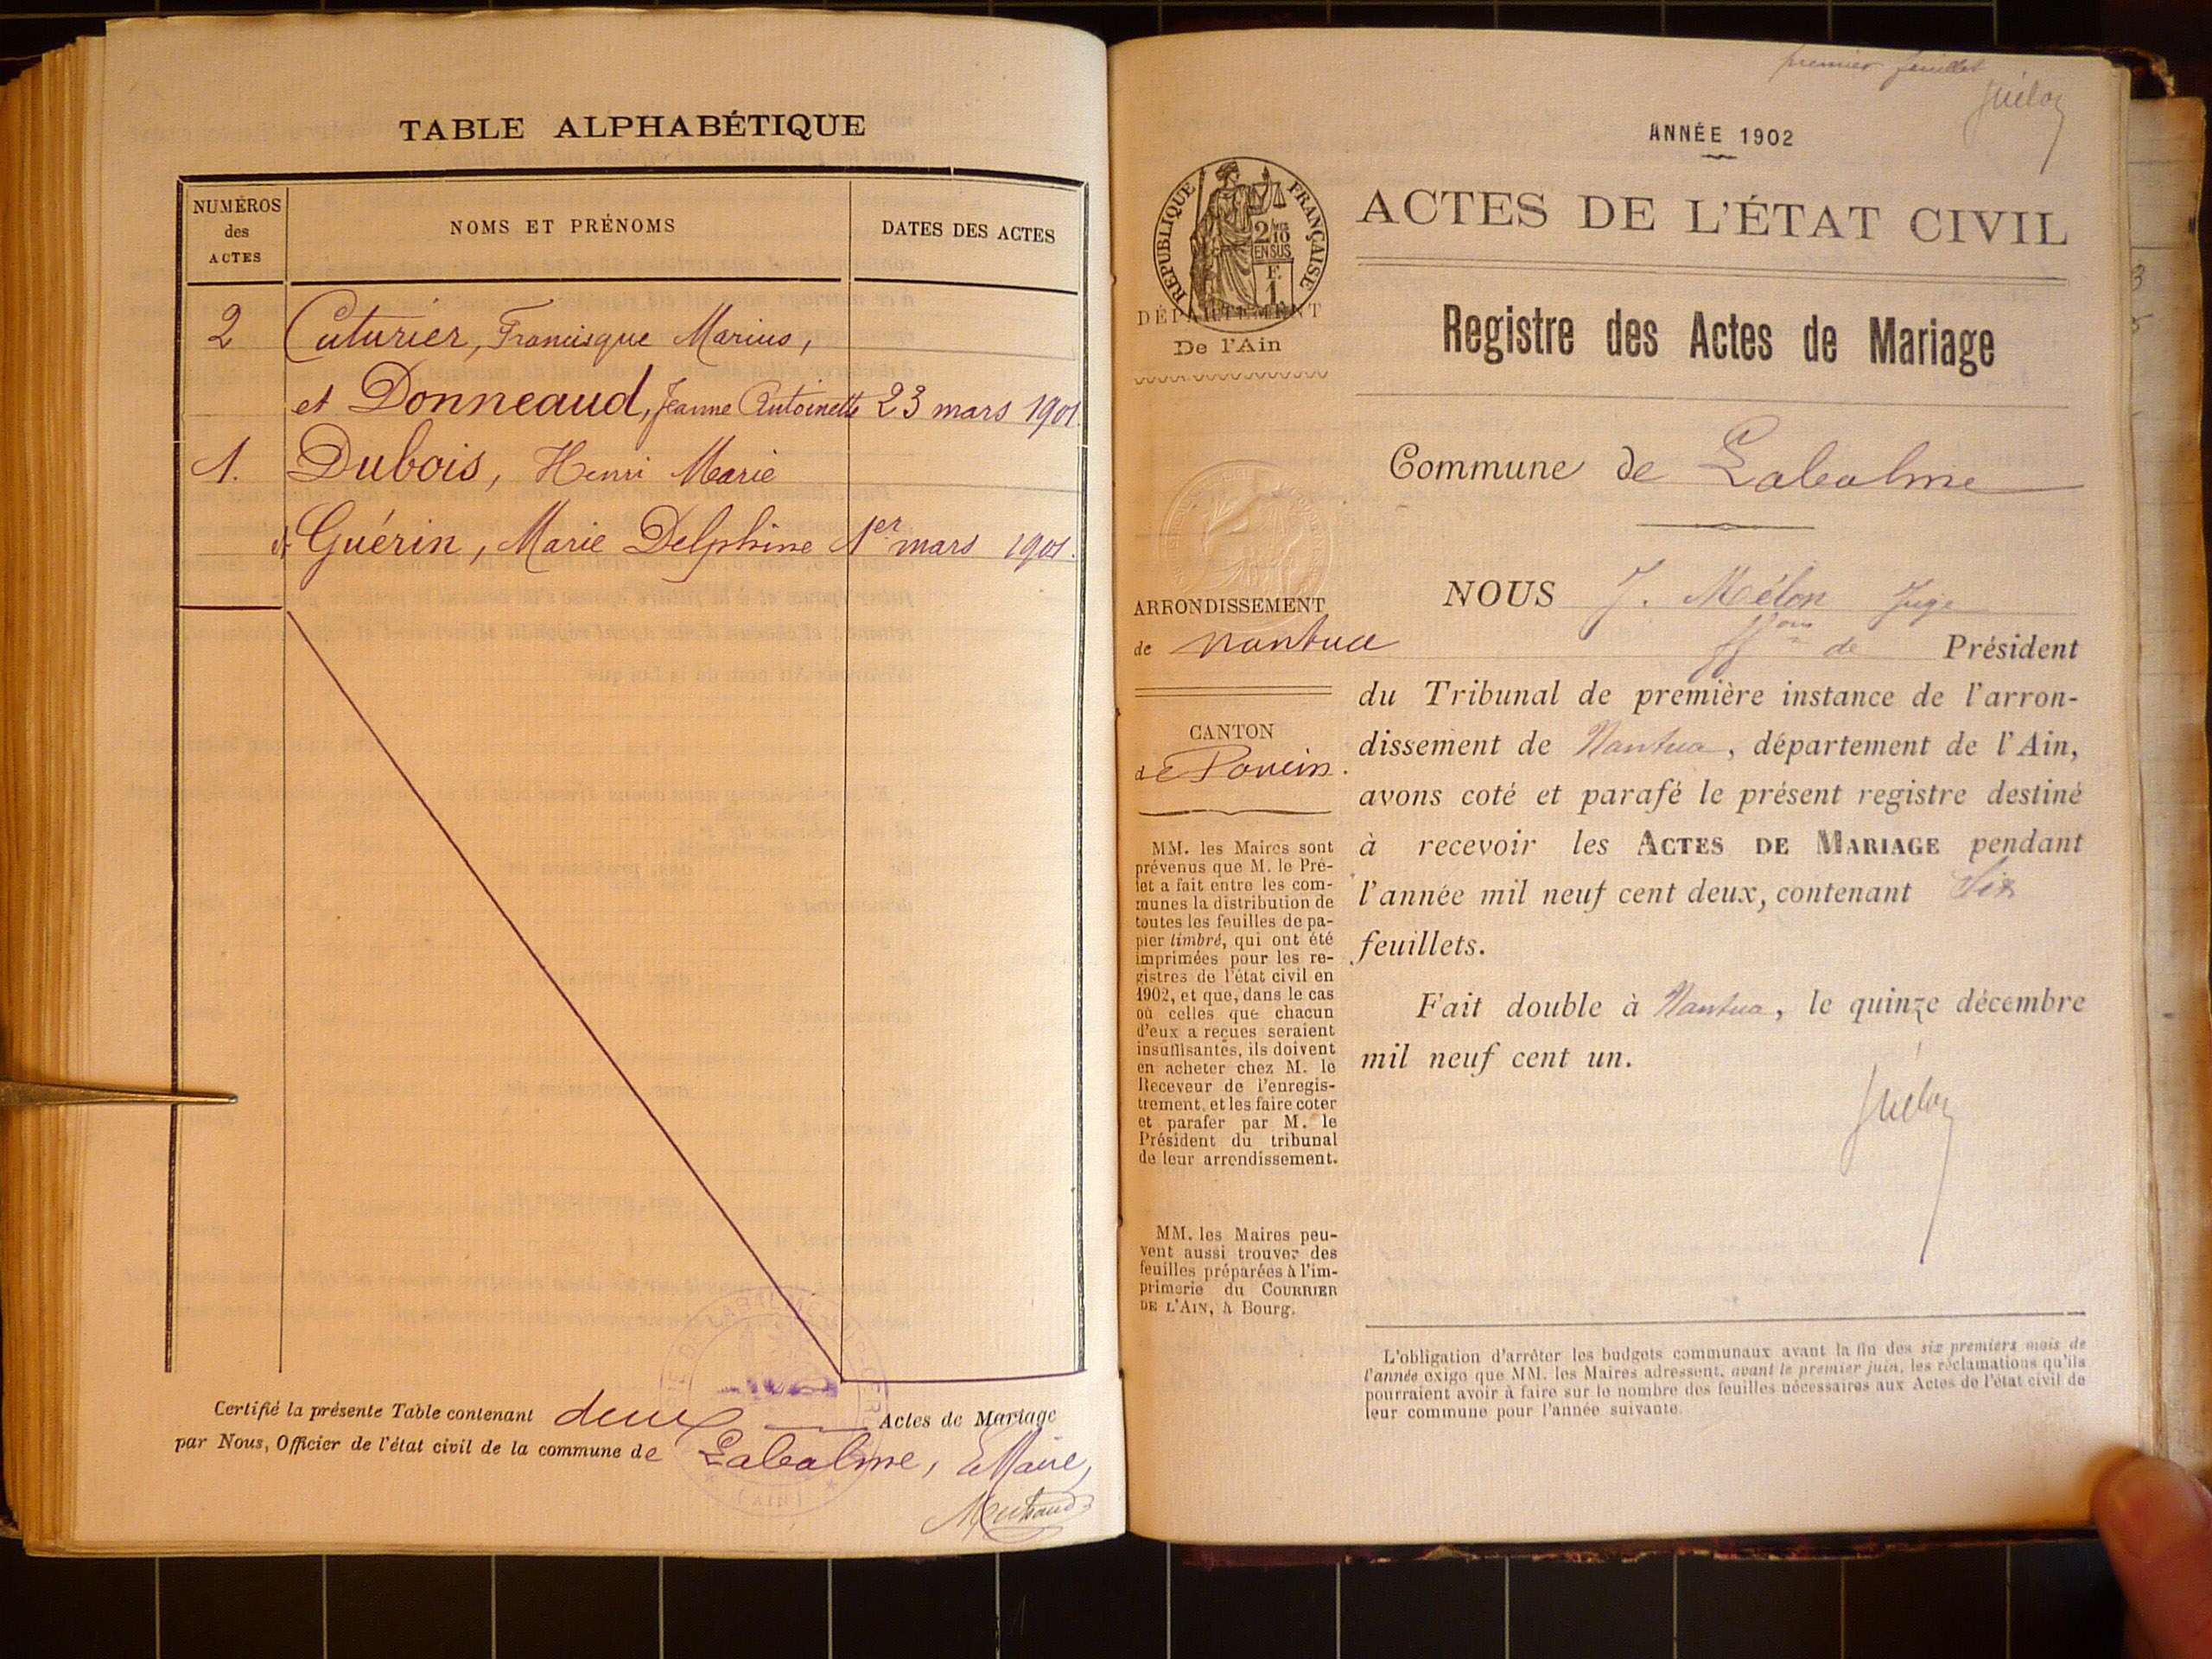 TABLE ALPHABÉTIQUE
NUMÉROS
des
ACTES
NOMS ET PRÉNOMS
DATES DES ACTES
2 Cuturier, Francisque Marius,
et Donneaud, Jeanne Antoinette 23 mars 1901.
1. Dubois, Henri Marie
et Guérin, Marie Delphine 1er mars 1901.
Certifié la présente Table contenant deux Actes de Mariage
par Nous, Officier de l'état civil de la commune de Labalme, Le Maire,
premier feuillet
ANNÉE 1902
ACTES DE L'ÉTAT CIVIL
RÉPUBLIQUE FRANÇAISE
2/10
EN SUS
F.
1.
DÉPARTEMENT
De l'Ain
Registre des Actes de Mariage
Commune de Labalme
ARRONDISSEMENT
de Nantua
CANTON
de Poncin.
MM. les Maires sont
prévenus que M. le Pré-
fet a fait entre les com-
munes la distribution de
toutes les feuilles de pa-
pier timbré, qui ont été
imprimées pour les re-
gistres de l'état civil en
1902, et que, dans le cas
où celles que chacun
d'eux a reçues seraient
insuffisantes, ils doivent
en acheter chez M. le
Receveur de l'enregis-
trement, et les faire coter
et parafer par M. le
Président du tribunal
de leur arrondissement.
MM. les Maires peu-
vent aussi trouver des
feuilles préparées à l'im-
primerie du COURRIER
DE L'AIN, à Bourg.
NOUS J. Mélon Juge
ffons de Président
du Tribunal de première instance de l'arron-
dissement de Nantua, département de l'Ain,
avons coté et parafé le présent registre destiné
à recevoir les ACTES DE MARIAGE pendant
l'année mil neuf cent deux, contenant Six
feuillets.
Fait double à Nantua, le quinze décembre
mil neuf cent un.
L'obligation d'arrêter les budgets communaux avant la fin des six premiers mois de
l'année exige que MM. les Maires adressent, avant le premier juin, les réclamations qu'ils
pourraient avoir à faire sur le nombre des feuilles nécessaires aux Actes de l'état civil de
leur commune pour l'année suivante.